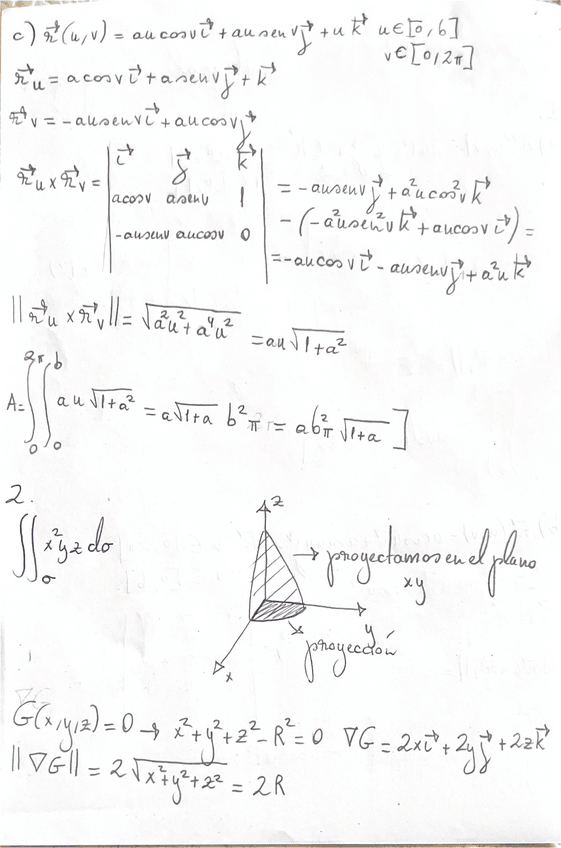 c) r⃗(u,v) = au cosv i⃗ + au senv j⃗ + u k⃗ u∈[0,b]
v∈[0,2π]
r⃗u = a cosv i⃗ + a senv j⃗ + k⃗
r⃗v = -au senv i⃗ + au cosv j⃗
r⃗u x r⃗v = | i⃗ j⃗ k⃗ |
| acosv asenv 1 | = -ausenv j⃗ + a²u cos²v k⃗
| -ausenv aucosv 0 | - (-a²usen²v k⃗ + aucosv i⃗) =
= -aucosv i⃗ - ausenv j⃗ + a²u k⃗
||r⃗u x r⃗v|| = √(a²u² + a⁴u²) = au√(1+a²)
A = ∫₀^2π ∫₀^b au√(1+a²) = a√(1+a) b²π = ab²π √(1+a) ]
2.
∬σ x²yz dσ
z
→ proyectamos en el plano
xy
y
proyección
x
G(x,y,z) = 0 → x²+y²+z²-R² = 0 ∇G = 2x i⃗ + 2y j⃗ + 2z k⃗
||∇G|| = 2√(x²+y²+z²) = 2R